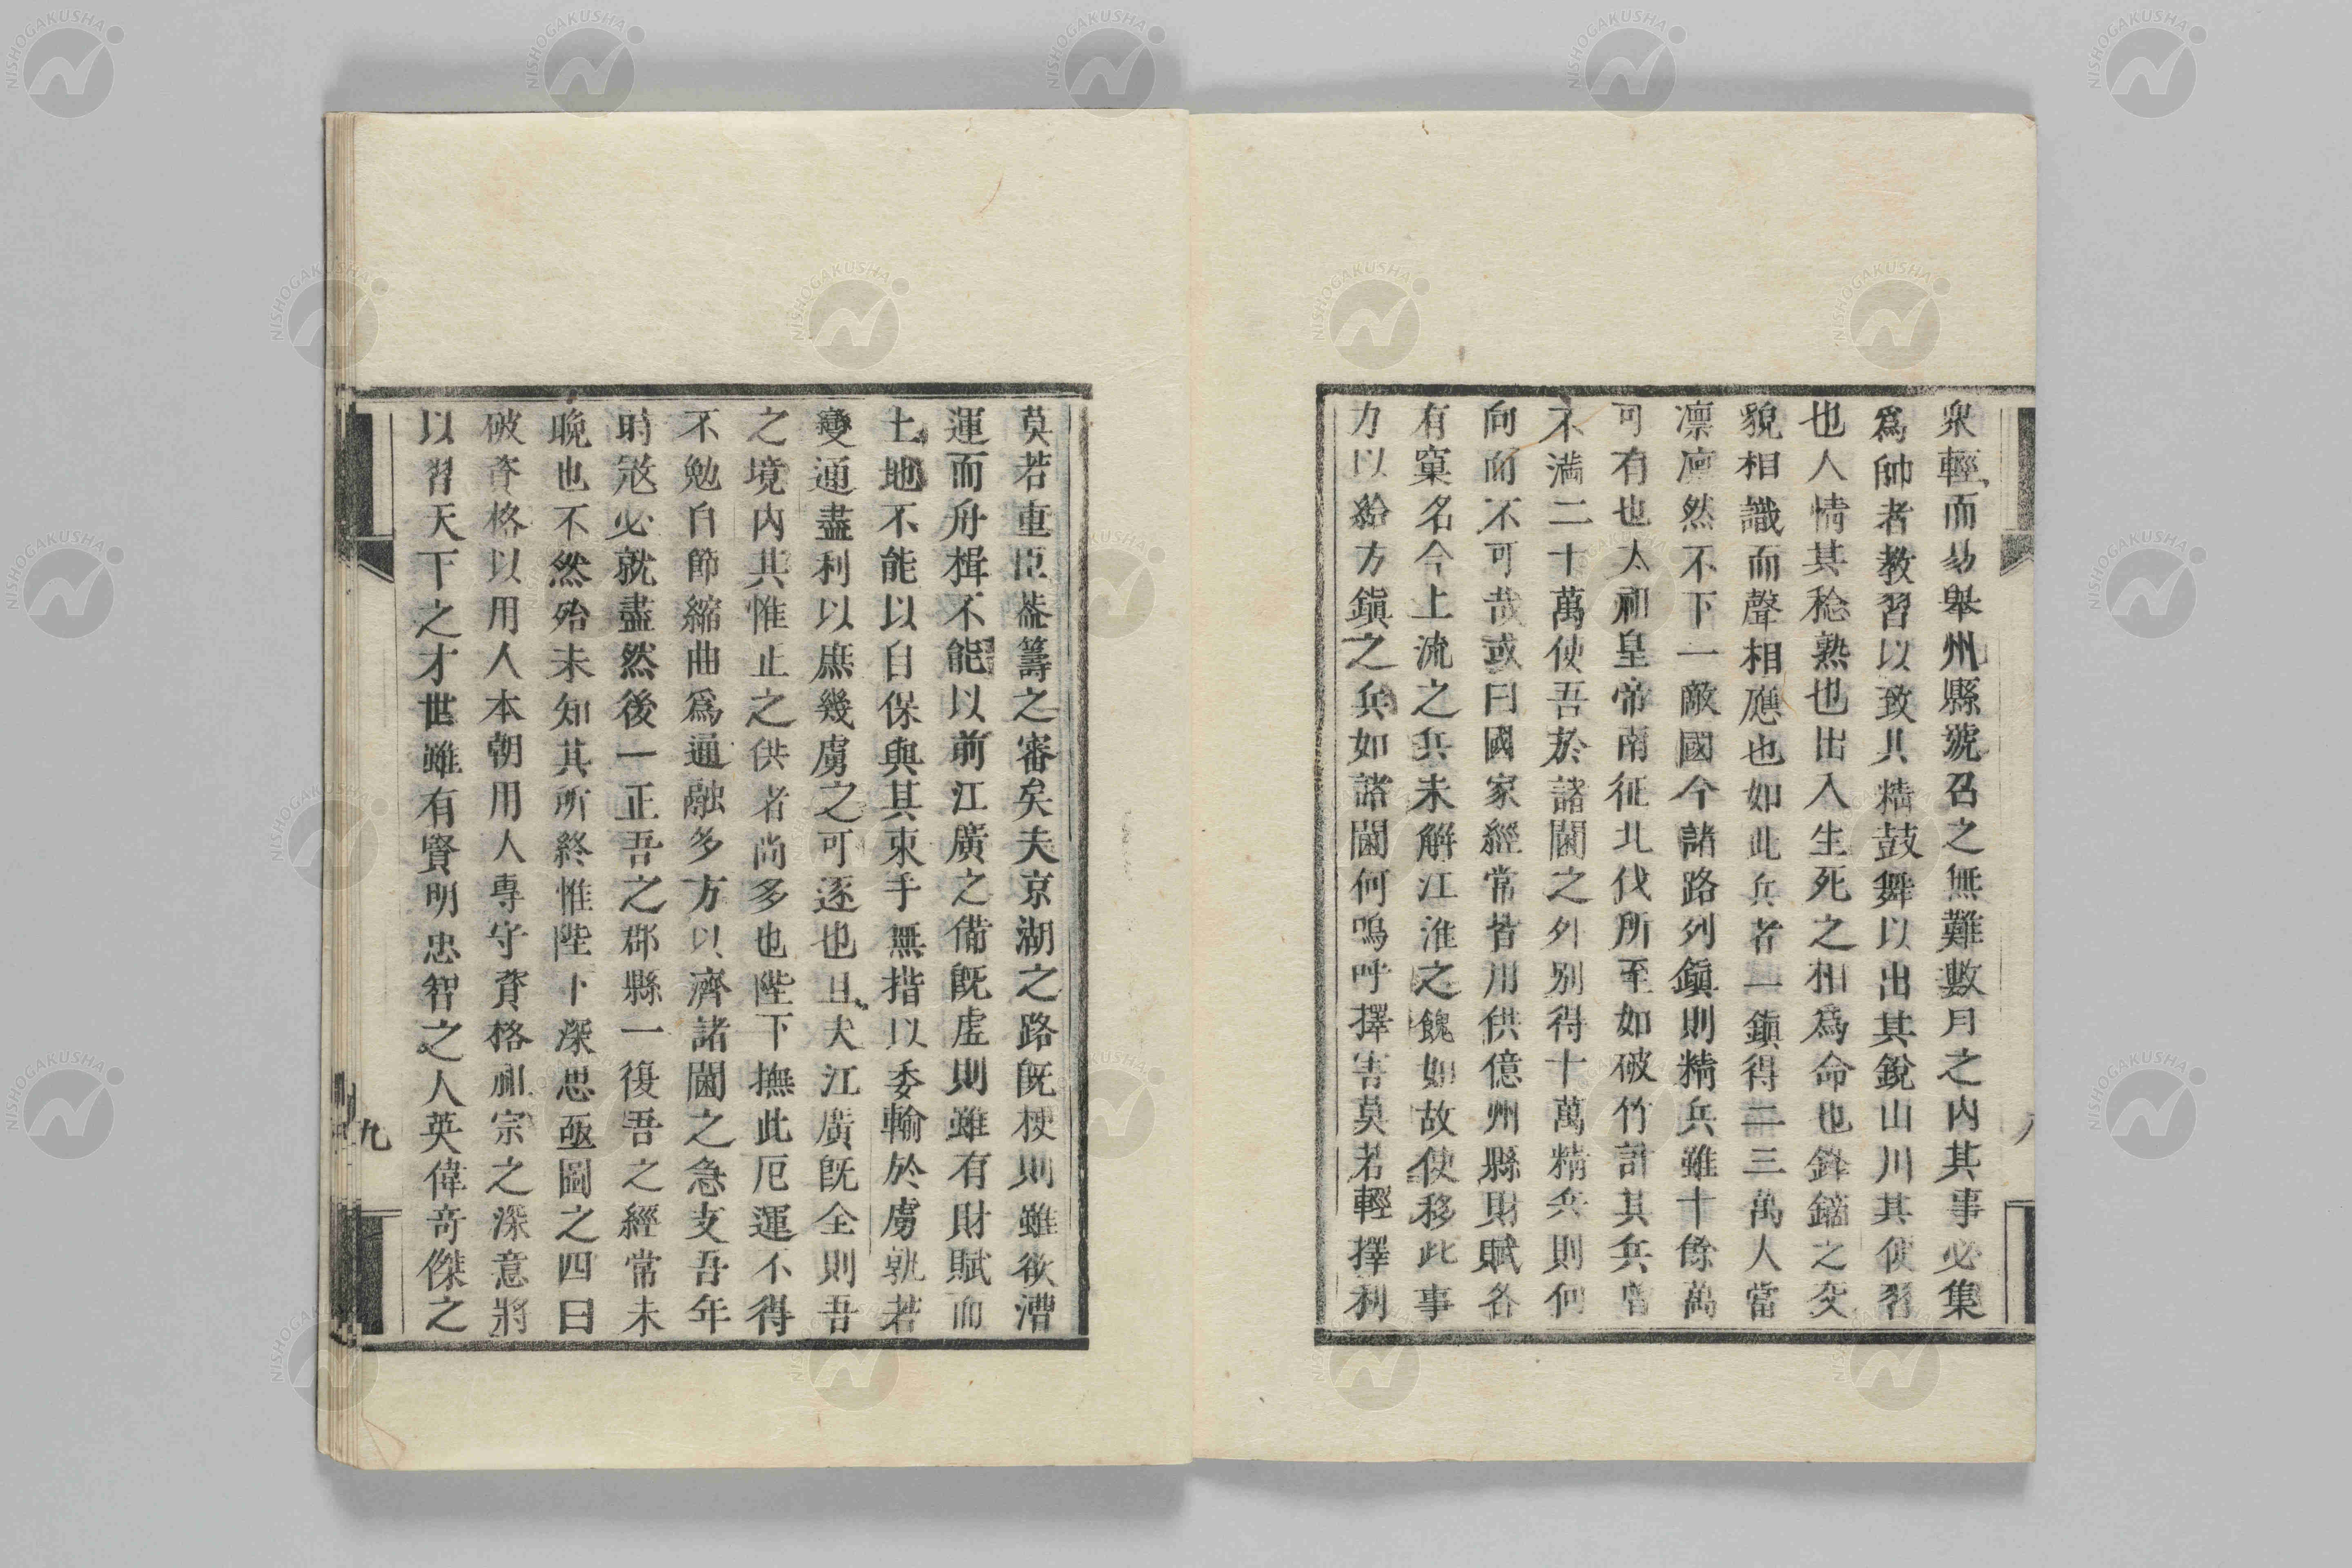 衆輕而易舉州縣號召之無難數月之內其事必集
爲帥者教習以致其精鼓舞以出其銳山川其便習
也人情其稔熟也出入生死之相爲命也鋒鏑之交
貌相識而聲相應也如此兵者一鎭得二三萬人當
凛凛然不下一敵國今諸路列鎭則精兵雖十餘萬
可有也太祖皇帝南征北伐所至如破竹計其兵曾
不滿二十萬使吾於諸閫之外別得十萬精兵則何
向而不可哉或曰國家經常皆用供億州縣財賦各
有窠名今上流之兵未解江淮之餽如故使移此事
力以給方鎭之兵如諸閫何嗚呼擇害莫若輕擇利
莫若重臣葢籌之審矣夫京湖之路旣梗則雖欲漕
運而舟楫不能以前江廣之備旣虛則雖有財賦而
土地不能以自保與其束手無措以委輸於虜孰若
變通盡利以庶幾虜之可逐也且夫江廣旣全則吾
之境內其惟止之供者尚多也陛下撫此厄運不得
不勉自節縮曲爲通融多方以濟諸閫之急支吾年
時寇必就盡然後一正吾之郡縣一復吾之經常未
晚也不然殆未知其所終惟陛下深思亟圖之四曰
破資格以用人本朝用人專守資格祖宗之深意將
以習天下之才世雖有賢明忠智之人英偉奇傑之
九
NISHOGAKUSHA